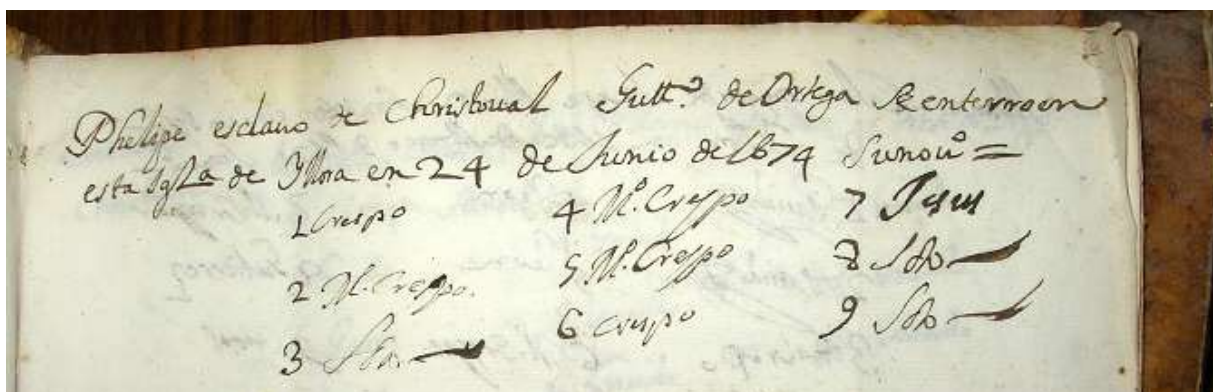 Phelipe esclauo de Christoual Gutt.º de Ortega se enterro en
esta Igla de Yllora en 24 de Junio de 1674 su nou.º =
1 Crespo 4 M.º Crespo 7 Jesus
2 M. Crespo. 5 M.º Crespo 8 Soto
3 6 Crespo 9 Soto